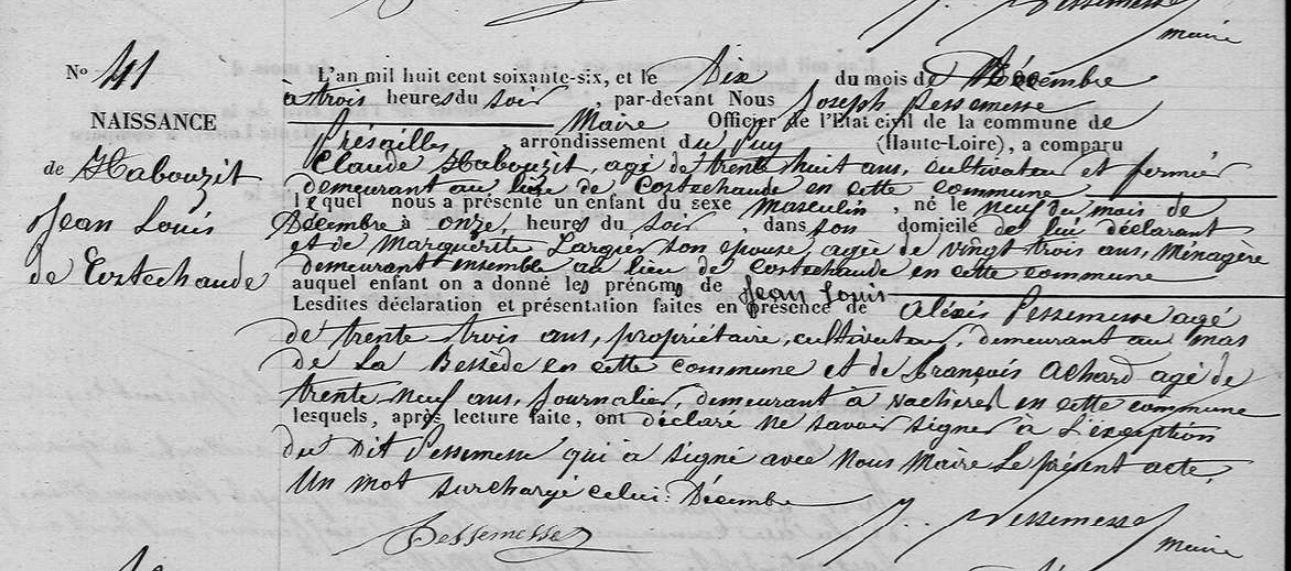 J. Pessemesse
maire
N° 41
NAISSANCE
de Habouzit
Jean Louis
de Costechaude
L'an mil huit cent soixante-six, et le Dix du mois de Décembre
à trois heures du soir, par-devant Nous Joseph Pessemesse
Maire Officier de l'Etat civil de la commune de
Présailles arrondissement du Puy (Haute-Loire), a comparu
Claude Habouzit, agé de trente huit ans, cultivateur et fermier
demeurant au lieu de Costechaude en cette commune
lequel nous a présenté un enfant du sexe masculin, né le neuf du mois de
Décembre à onze, heures du soir, dans son domicile de lui déclarant
et de Marguerite Largier son epouse agée de vingt trois ans, Ménagère
demeurant ensemble au lieu de Costechaude en cette commune
auquel enfant on a donné les prénoms de Jean Louis
Lesdites déclaration et présentation faites en présence de Aléxis Pessemesse agé
de trente trois ans, propriétaire, cultivateur, demeurant au mas
de La Bessède en cette commune et de François Achard agé de
trente neuf ans, journalier, demeurant à vachères en cette commune
lesquels, après lecture faite, ont déclaré ne savoir signer à L'exception
du Dit Pessemesse qui a signé avec Nous Maire Le présent acte,
Un mot surchargé celui: Décembre
Pessemesse J. Pessemesse
maire